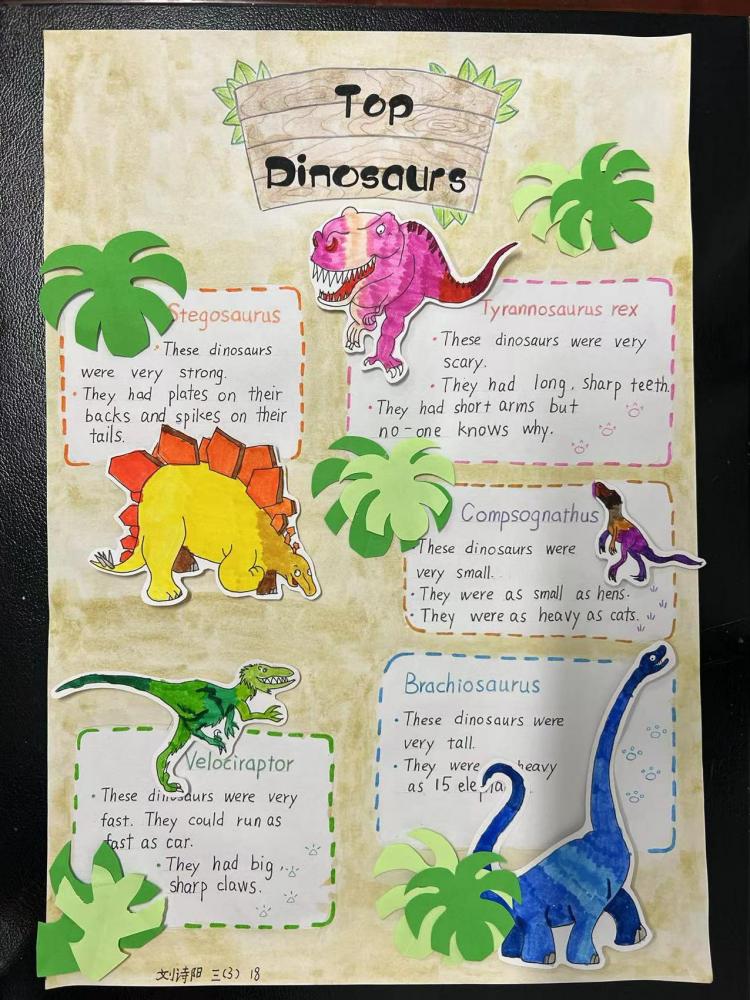 Top
Dinosaurs
Stegosaurus
These dinosaurs
were very strong.
• They had plates on their
backs and spikes on their
tails.
Tyrannosaurus rex
• These dinosaurs were very
scary.
• They had long, sharp teeth.
• They had short arms but
no-one knows why.
Compsognathus
These dinosaurs were
very small.
• They were as small as hens.
• They were as heavy as cats.
Brachiosaurus
• These dinosaurs were
very tall.
• They were heavy
as 15
Velociraptor
• These dinosaurs were very
fast. They could run as
fast as car.
• They had big,
sharp claws.
刘诗阳 三(3) 18